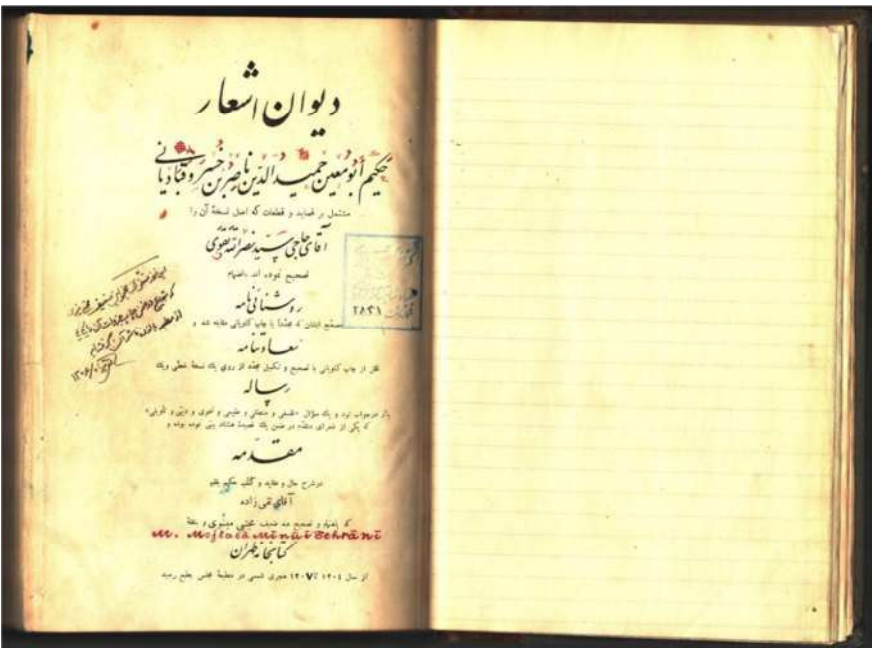 دیوان اشعار
حکیم أبومعین حمیدالدین ناصر بن خسرو قبادیانی
مشتمل بر قصاید و قطعات که اصل نسخهٔ آن را
آقای حاجی سید نصرالله تقوی
تصحیح نموده اند بانضمام
روشنائی‌نامه
مصحح ایشان که مجدداً با چاپ کاویانی مقابله شد و
سعادتنامه
نقل از چاپ کاویانی با تصحیح و تکمیل مجدد از روی یک نسخهٔ خطی ویک
رساله
بنثر درجواب نود و یک سؤال «فلسفی و منطقی و طبیعی و نحوی و دینی و تأویلی»
که یکی از شعرای متقدم در ضمن یک قصیدهٔ هشتاد بیتی نموده بوده و
مقدمه
درشرح حال و عقاید و کتب حکیم بقلم
آقای تقی زاده
که باهتمام و تصحیح عبد ضعیف مجتبی مینوی و بنفقهٔ
M. Mojtabā Minūī Tehrānī
کتابخانهٔ طهران
از سال ۱۳۰۴ تا ۱۳۰۷ هجری شمسی در مطبعهٔ مجلس بطبع رسید
۲۸۳۱